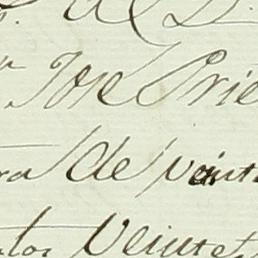 José Prie
ra de veint
tos Veinte